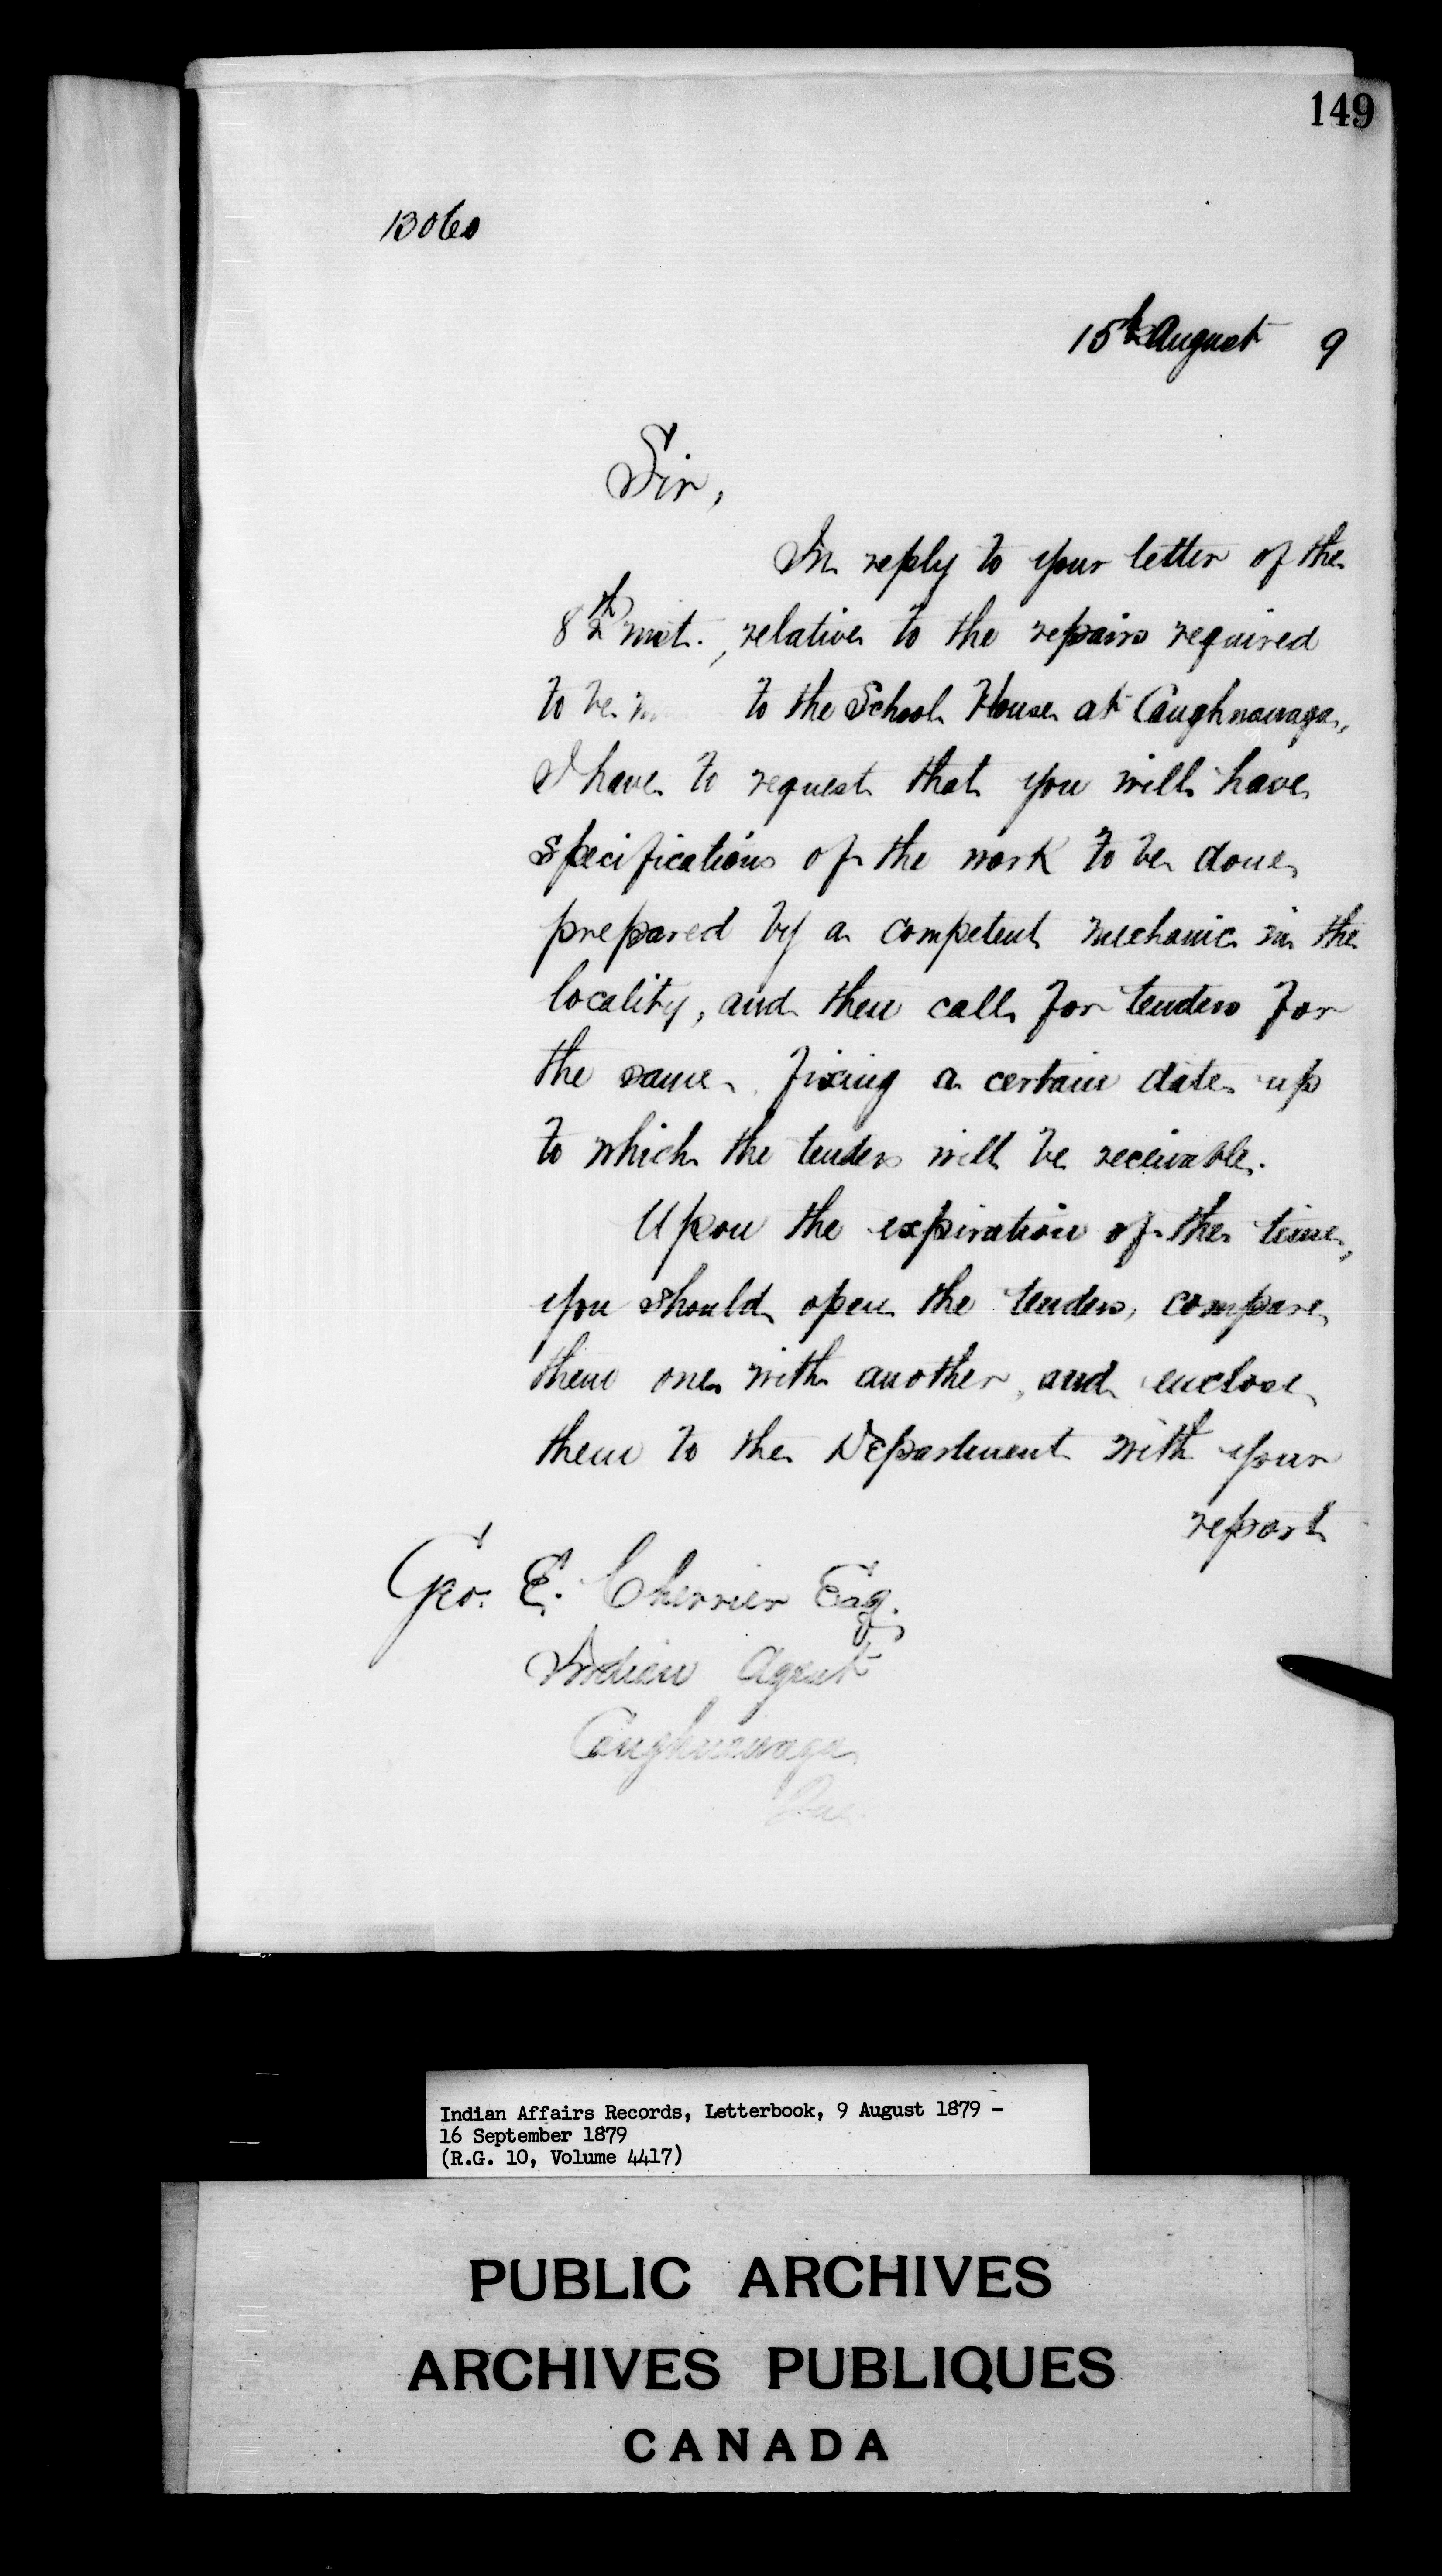 149
13060
15th August 9
Sir,
In reply to your letter of the
8th inst., relative to the repairs required
to be to the School House at Caughnawaga,
I have to request that you will have
specifications of the work to be done
prepared by a competent mechanic in the
locality, and then call for tenders for
the same, fixing a certain date up
to which the tenders will be receivable.
Upon the expiration of the time,
you should open the tenders, compare
them one with another, and enclose
them to the Department with your
report
Geo. E. Cherrier Esq.
Indian Agent
Caughnawaga
Que.
Indian Affairs Records, Letterbook, 9 August 1879 -
16 September 1879
(R.G. 10, Volume 4417)
PUBLIC ARCHIVES
ARCHIVES PUBLIQUES
CANADA